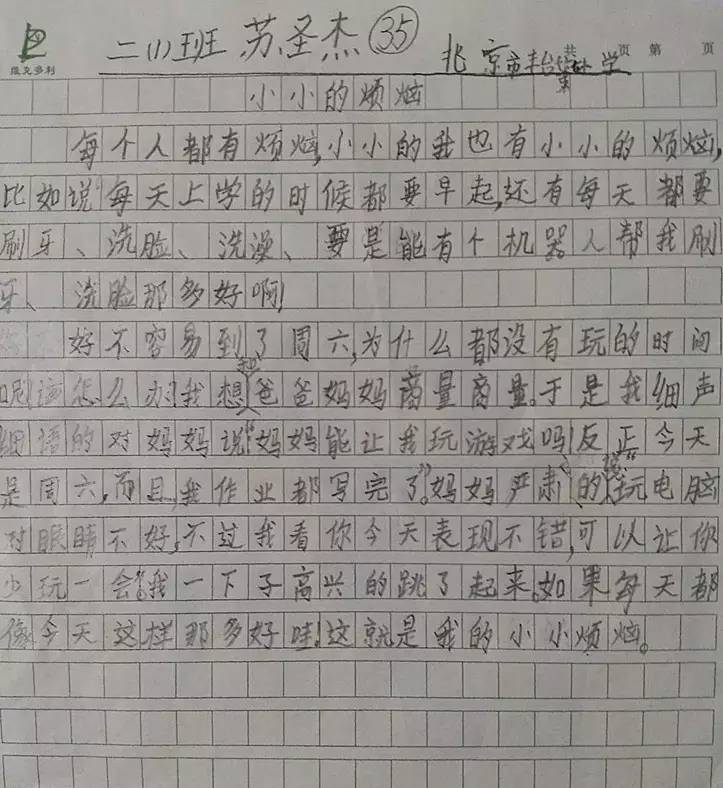 维克多利
二(1)班 苏圣杰 35 北京市丰台 小学
共 页 第 页
小小的烦恼
每个人都有烦恼,小小的我也有小小的烦恼,
比如说每天上学的时候都要早起,还有每天都要
刷牙、洗脸、洗澡、要是能有个机器人帮我刷
牙、洗脸那多好啊!
好不容易到了周六,为什么都没有玩的时间
呢!该怎么办?我想和爸爸妈妈商量商量。于是我细声
细语的对妈妈说:“妈妈能让我玩游戏吗!反正今天
是周六,而且,我作业都写完了。”妈妈严肃的说“玩电脑
对眼睛不好,不过我看你今天表现不错,可以让你
少玩一会”我一下子高兴的跳了起来。如果每天都
像今天这样那多好哇!这就是我的小小烦恼。